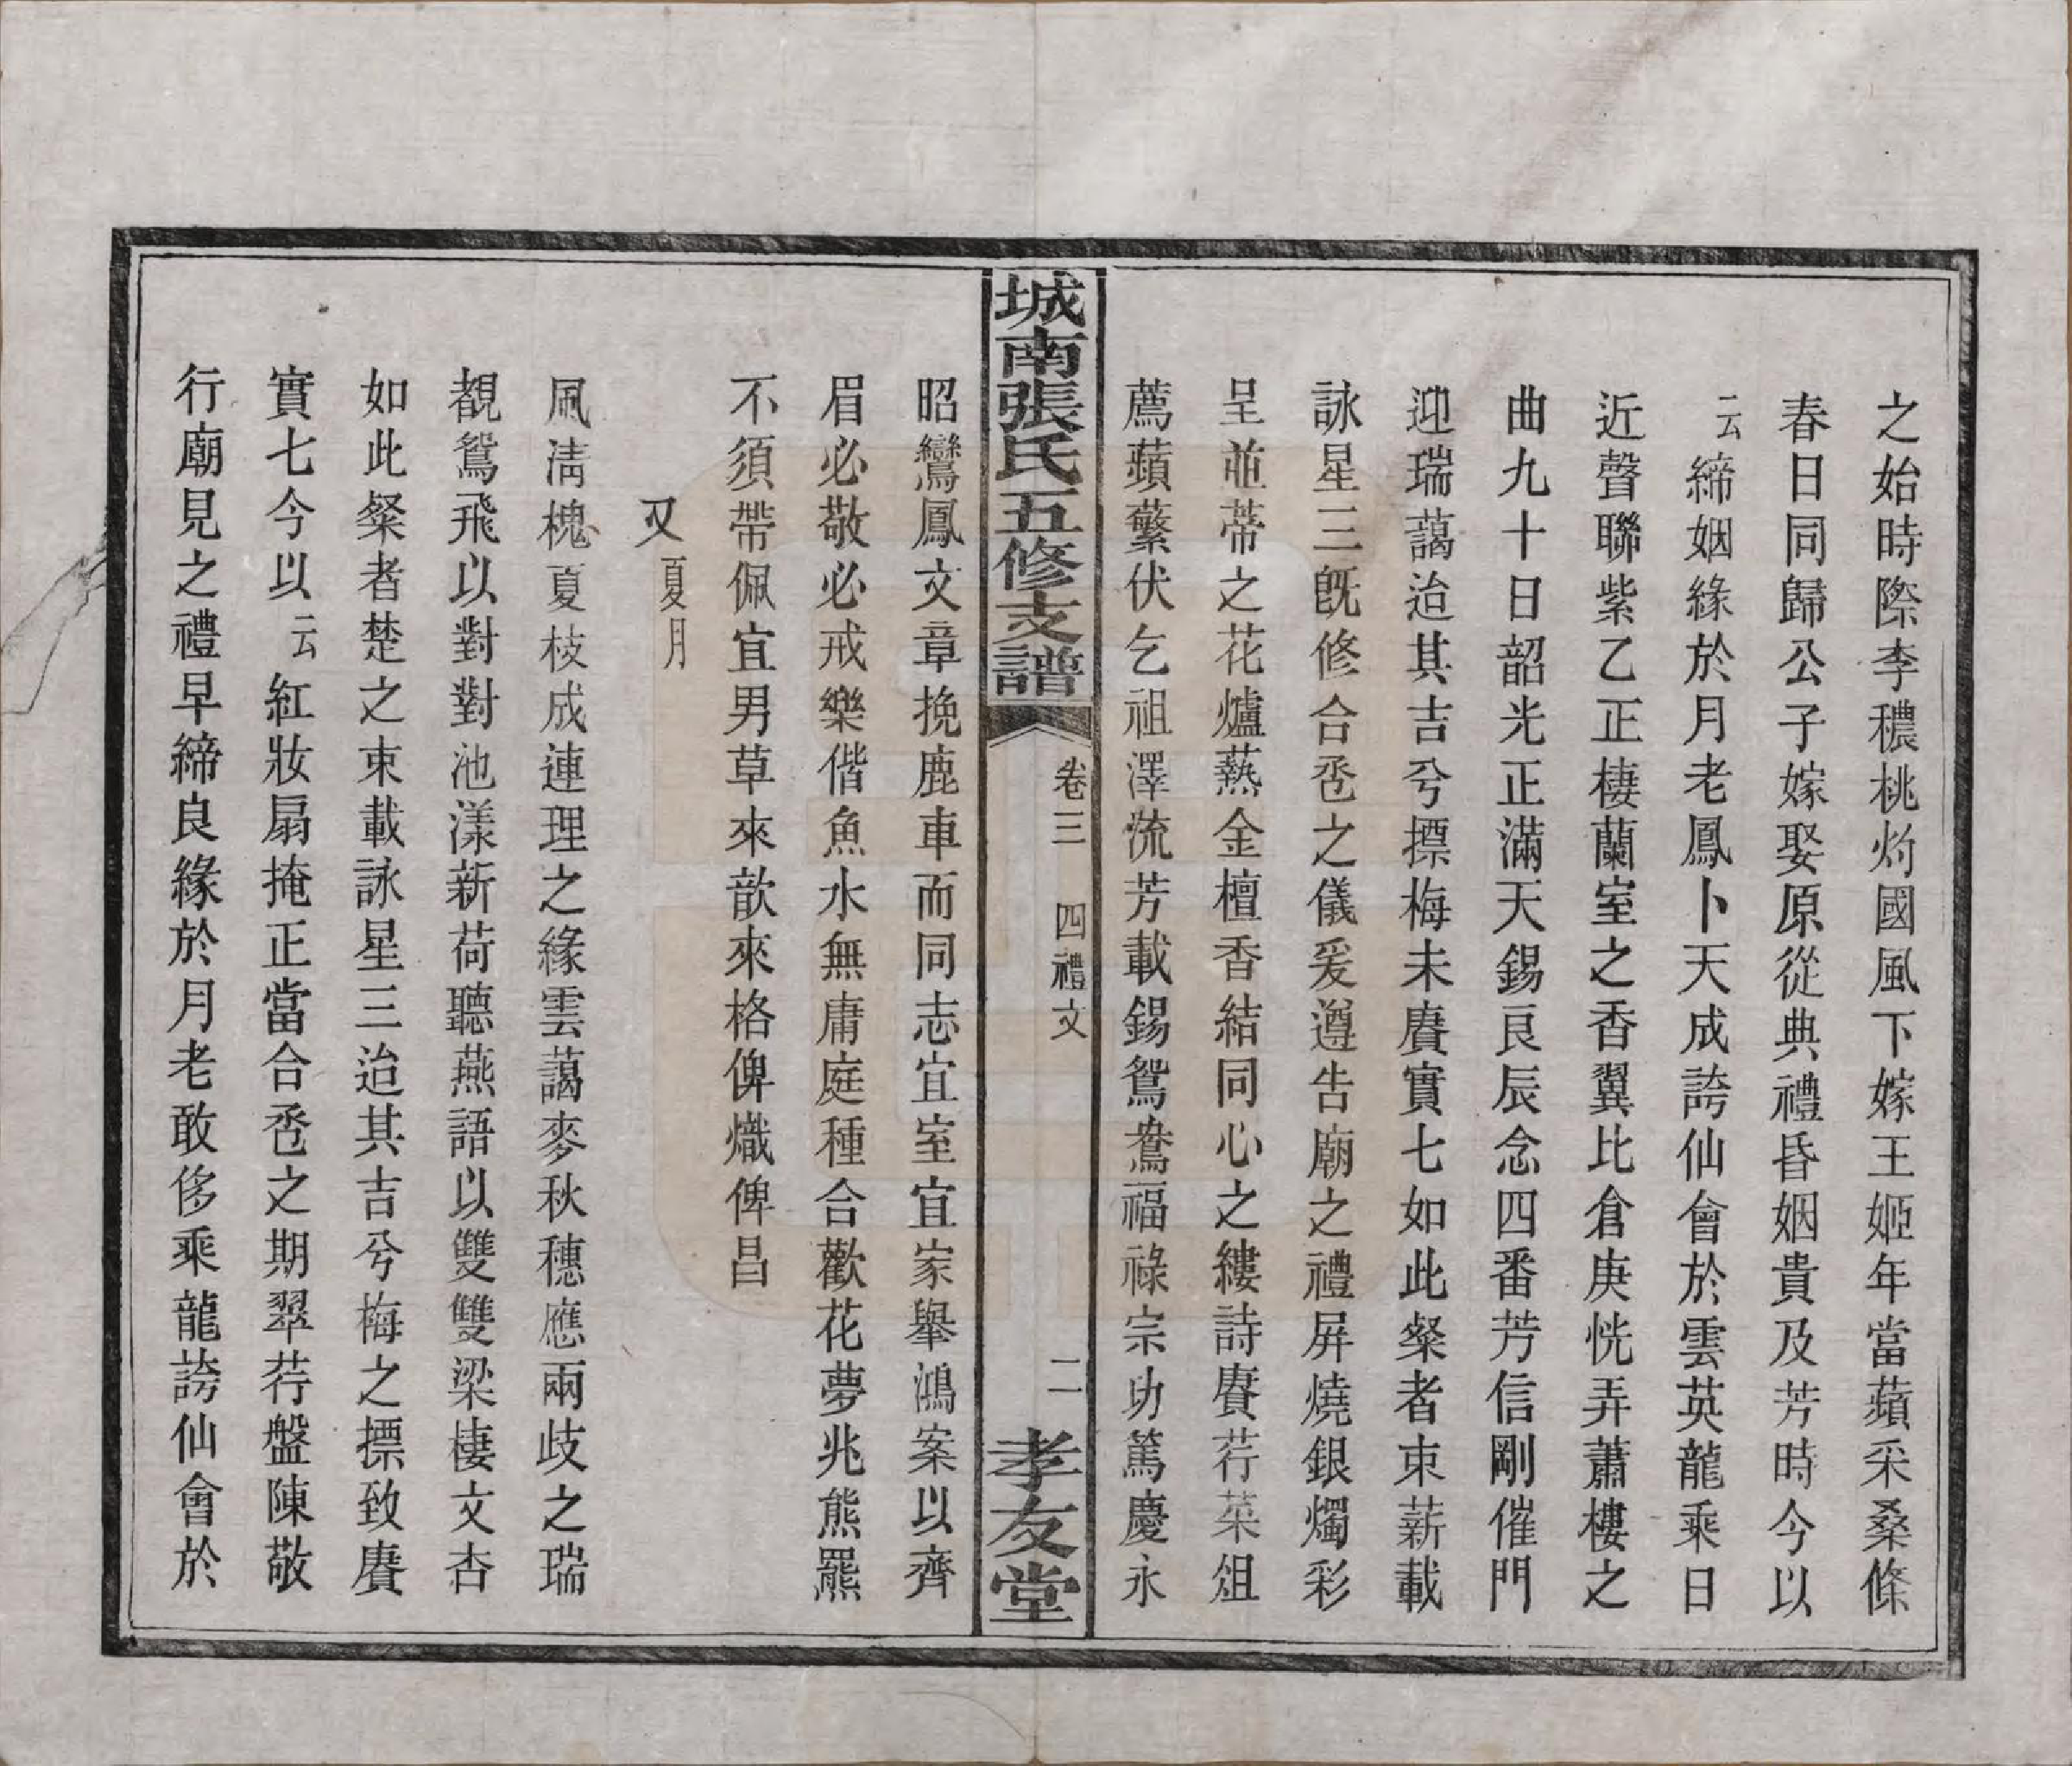 之始時際李穠桃灼國風下嫁王姬年當蘋采桑條
春日同歸公子嫁娶原從典禮昏姻貴及芳時今以
云締姻緣於月老鳳卜天成誇仙會於雲英龍乘日
近聲聯紫乙正棲蘭室之香翼比倉庚恍弄蕭樓之
曲九十日韶光正滿天錫良辰念四番芳信剛催門
迎瑞藹迨其吉兮摽梅未賡實七如此粲者束薪載
詠星三旣修合巹之儀爰遵告廟之禮屏燒銀燭彩
呈並蒂之花爐爇金檀香結同心之縷詩賡荇菜俎
薦蘋蘩伏乞祖澤流芳載錫鴛鴦福祿宗功篤慶永
城南張氏五修支譜
卷三 四禮文
二
孝友堂
昭鸞鳳文章挽鹿車而同志宜室宜家舉鴻案以齊
眉必敬必戒樂偕魚水無庸庭種合歡花夢兆熊羆
不須帶佩宜男草來歆來格俾熾俾昌
又夏月
風清槐夏枝成連理之緣雲藹麥秋穗應兩歧之瑞
覩鴛飛以對對池漾新荷聽燕語以雙雙梁棲文杏
如此粲者楚之束載詠星三迨其吉兮梅之摽致賡
實七今以云紅妝扇掩正當合巹之期翠荇盤陳敬
行廟見之禮早締良緣於月老敢侈乘龍誇仙會於